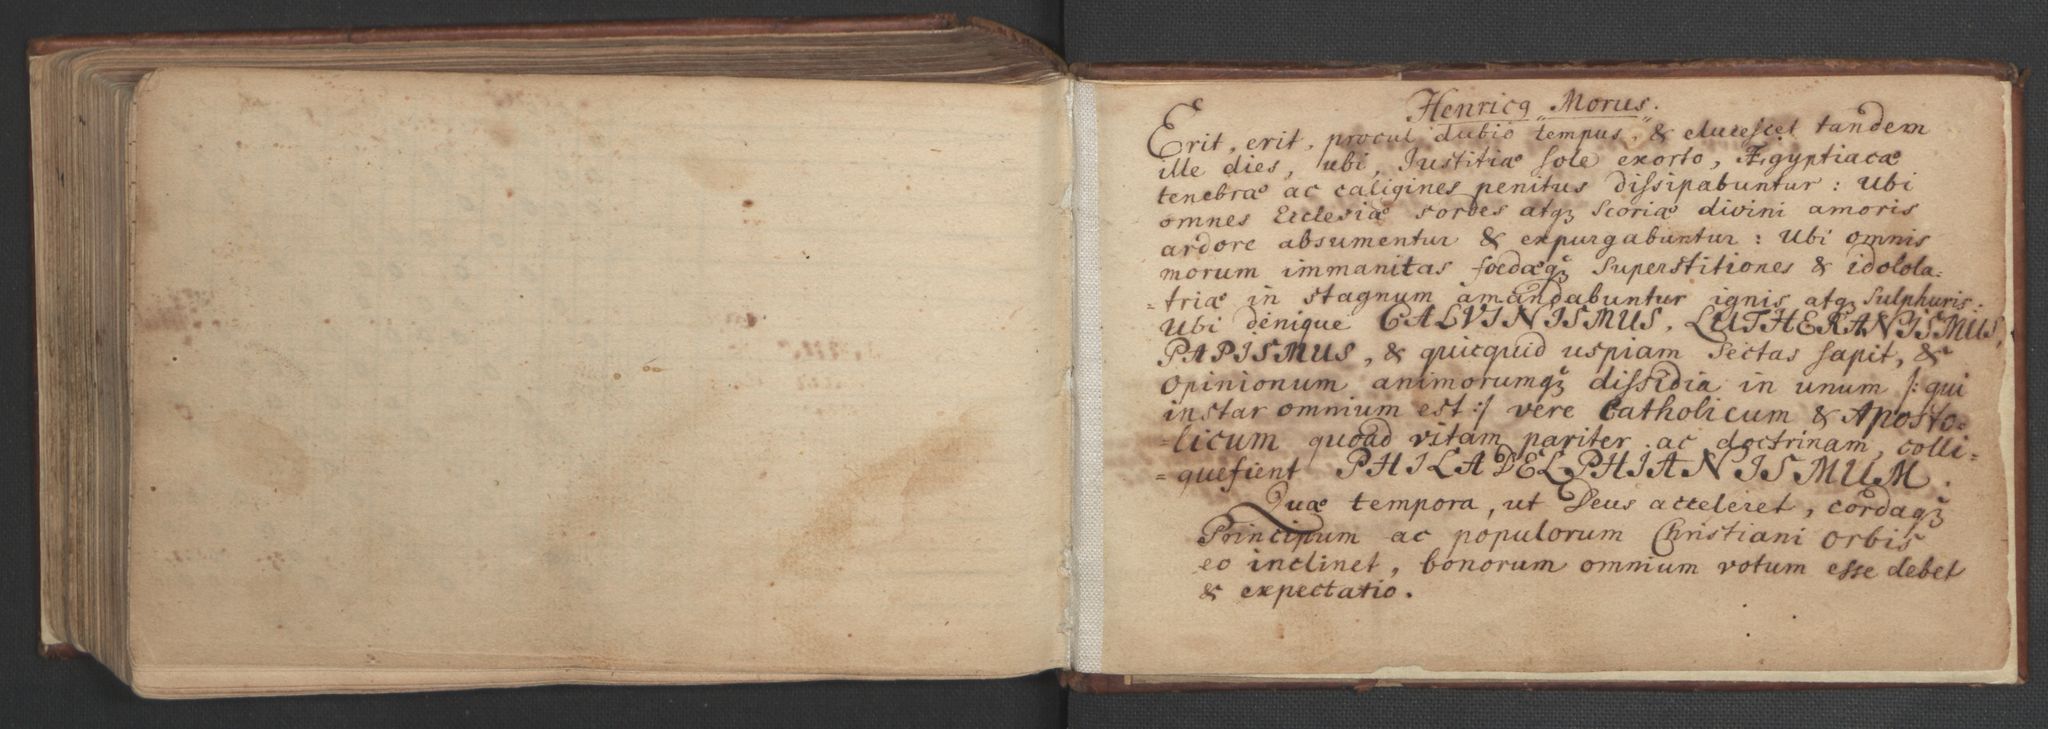 Henricꝯ Morus.
Erit, erit, procul dubio tempus, & elucescet tandem
ille dies, ubi, Justitiæ sole exorto, Ægyptiacæ
tenebræ ac caligines penitus dissipabuntur: Ubi
omnes Ecclesiæ sordes atqꝫ scoriæ divini amoris
ardore absumentur & expurgabuntur: Ubi omnis
morum immanitas foedæqꝫ superstitiones & idolola⸗
⸗triæ in stagnum amandabuntur ignis atqꝫ sulphuris.
Ubi denique CALVINISMUS, LUTHERANISMUS,
PAPISMUS, & quicquid uspiam sectas sapit, &
opinionum animorumqꝫ dissidia in unum /: qui
instar omnium est :/ vere Catholicum & Aposto⸗
⸗licum quoad vitam pariter ac doctrinam, colli⸗
⸗quefient PHILADELPHIANISMUM.
Quæ tempora, ut Deus acceleret, cordaqꝫ
Principum ac populorum Christiani orbis
eo inclinet, bonorum omnium votum esse debet
& expectatio.